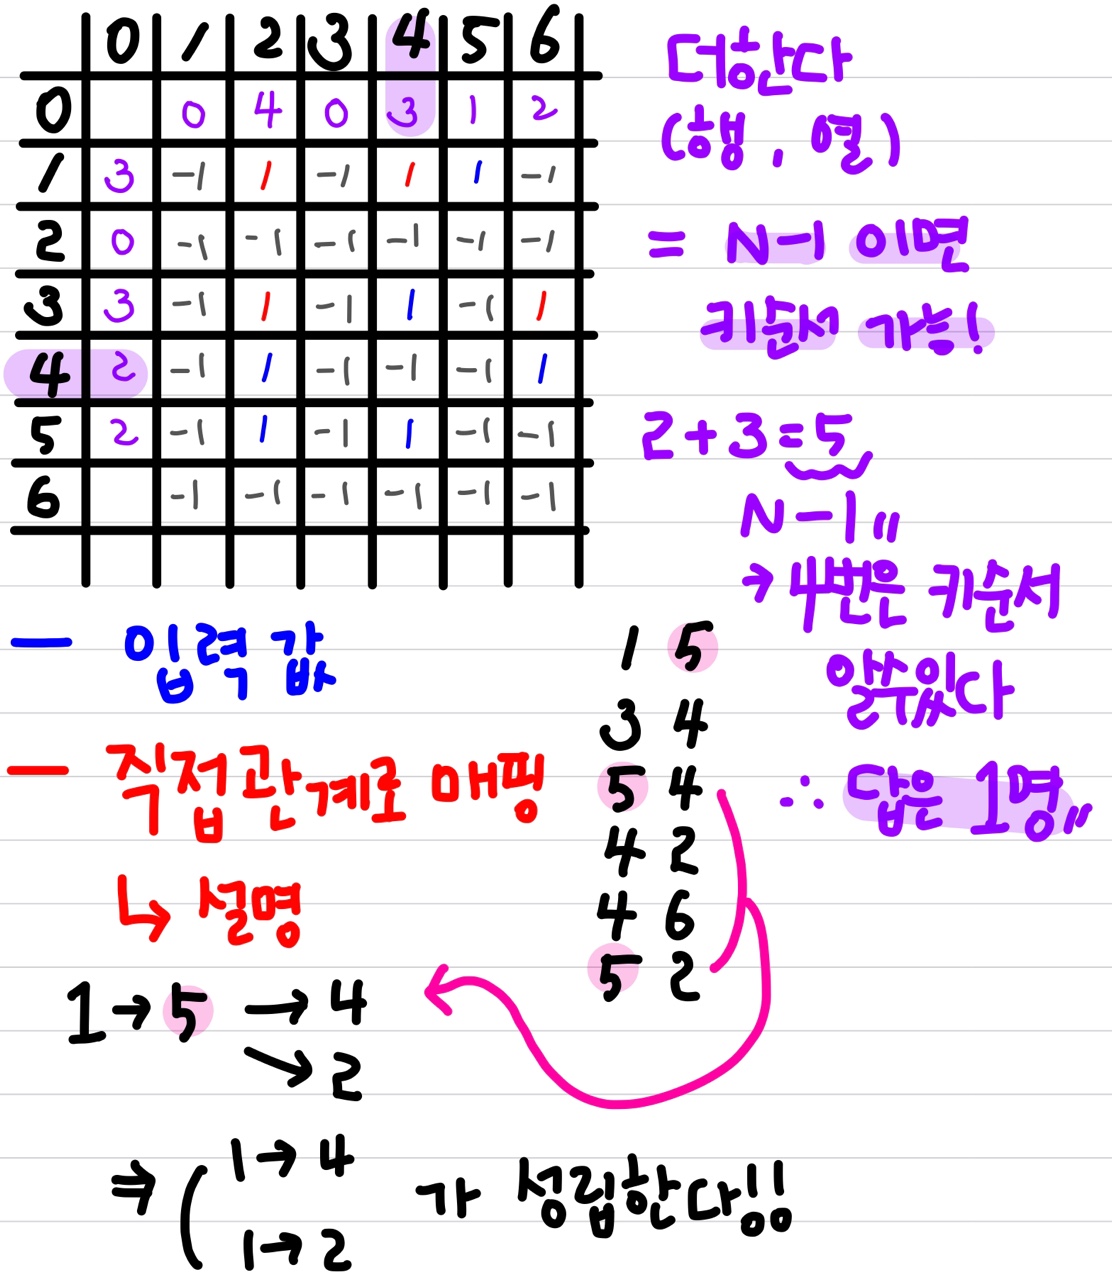 0 1 2 3 4 5 6
0 0 4 0 3 1 2
1 3 -1 1 -1 1 1 -1
2 0 -1 -1 -1 -1 -1 -1
3 3 -1 1 -1 1 -1 1
4 2 -1 1 -1 -1 -1 1
5 2 -1 1 -1 1 -1 -1
6 -1 -1 -1 -1 -1 -1
더한다
(행, 열)
= N-1 이면
키순서 가능!
2+3=5
N-1〃
→ 4번은 키순서
알수있다
∴ 답은 1명〃
― 입력 값
― 직접관계로 매핑
↳ 설명
1 5
3 4
5 4
4 2
4 6
5 2
1→5 →4
↘2
⇒ ( 1→4
1→2
가 성립한다!!